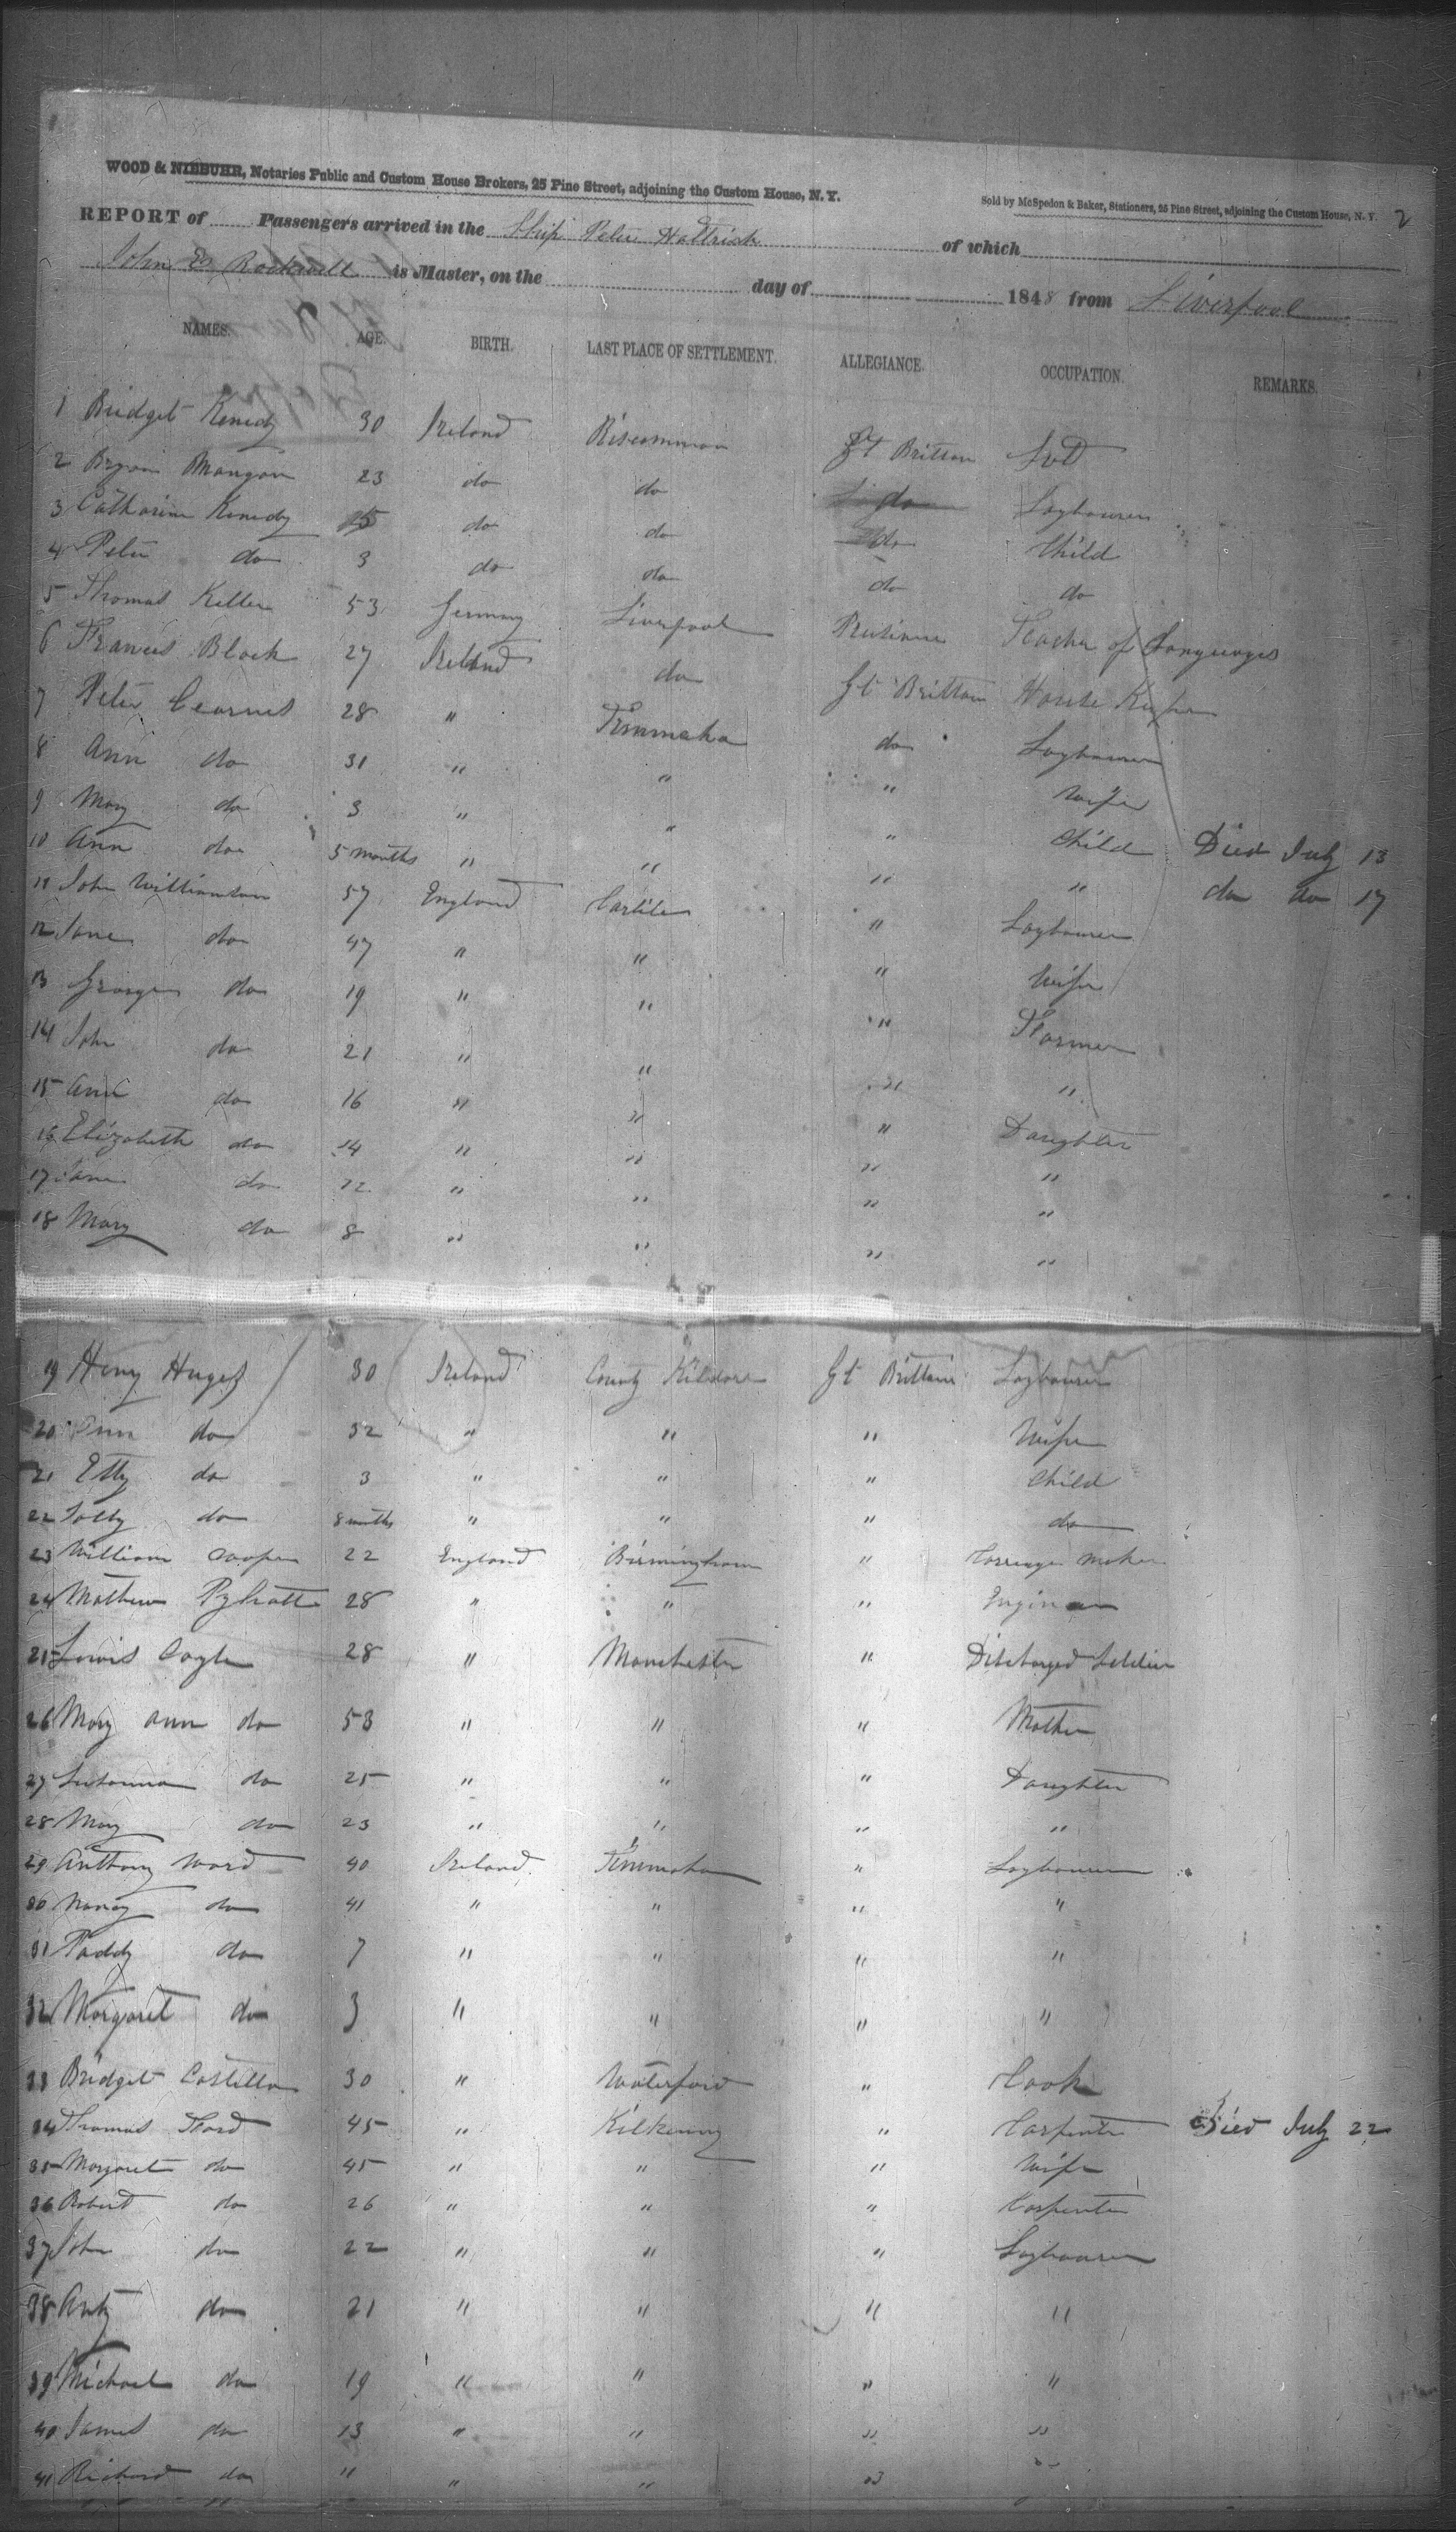 2
WOOD & NIEBUHR, Notaries Public and Custom House Brokers, 25 Pine Street, adjoining the Custom House, N. Y.
Sold by McSpedon & Baker, Stationers, 25 Pine Street, adjoining the Custom House, N. Y.
REPORT of Passengers arrived in the Ship Peter Hattrick of which
John E Rockwell is Master, on the day of 1848 from Liverpool
NAMES. AGE. BIRTH. LAST PLACE OF SETTLEMENT. ALLEGIANCE. OCCUPATION. REMARKS.
1 Bridget Kenedy 30 Ireland Roscommon Gt Brittan Svt
2 Bryan Mangan 23 do do do Laybourer
3 Catharine Kenedy do do do Child
4 Peter do 3 do do do do
5 Thomas Keller 53 Germany Liverpool Teacher of Languages
6 Francis Black 27 Ireland do Gt Brittan House Keeper
7 Peter 28 " do Laybourer
8 Ann do 31 " " " Wife
9 Mary do 3 " " " Child Died July 13
10 Ann do 5 months " " " " do do 17
11 John Williamson 57 England Carlile " Laybourer
12 Jane do 47 " " " Wife
13 George do 19 " " " Farmer
14 John do 21 " " " "
15 Ann do 16 " " " Daughter
16 Elizabeth do 14 " " " "
17 Jane do 12 " " " "
18 Mary do 8 " " " "
19 Henry 30 Ireland County Kildare Gt Brittain Laybourer
20 Ann do 32 " " " Wife
21 Etty do 3 " " " Child
22 do 8 months " " " do
23 William Cooper 22 England Birmingham " Carriage Maker
24 Mathew 28 " " "
25 Lewis Coyle 28 " Manchester " Discharged Soldier
26 Mary Ann do 53 " " " Mother
27 Susanna do 25 " " " Daughter
28 Mary do 23 " " " "
29 Anthony Ward 40 Ireland " Laybourer
30 Nancy do 41 " " " "
31 Paddy do 7 " " " "
32 Margaret do 3 " " " "
33 Bridget Costello 30 " Waterford " Cook
34 Thomas 45 " Kilkenny " Carpenter Died July 22
35 Margaret do 45 " " " Wife
36 Robert do 26 " " " Carpenter
37 John do 22 " " " Laybourer
38 do 21 " " " "
39 Michael do 19 " " " "
40 James do 13 " " " "
41 Richard do 11 " " " "